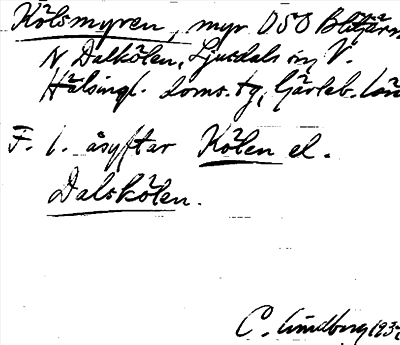 Kölsmyren, myr OSO Blåtjärn
N Dalkölen, Ljusdals sn, V.
Hälsingl. doms. tg, Gävleb. län
F. l. åsyftar Kölen el.
Dalskölen.
C. Lindberg 193